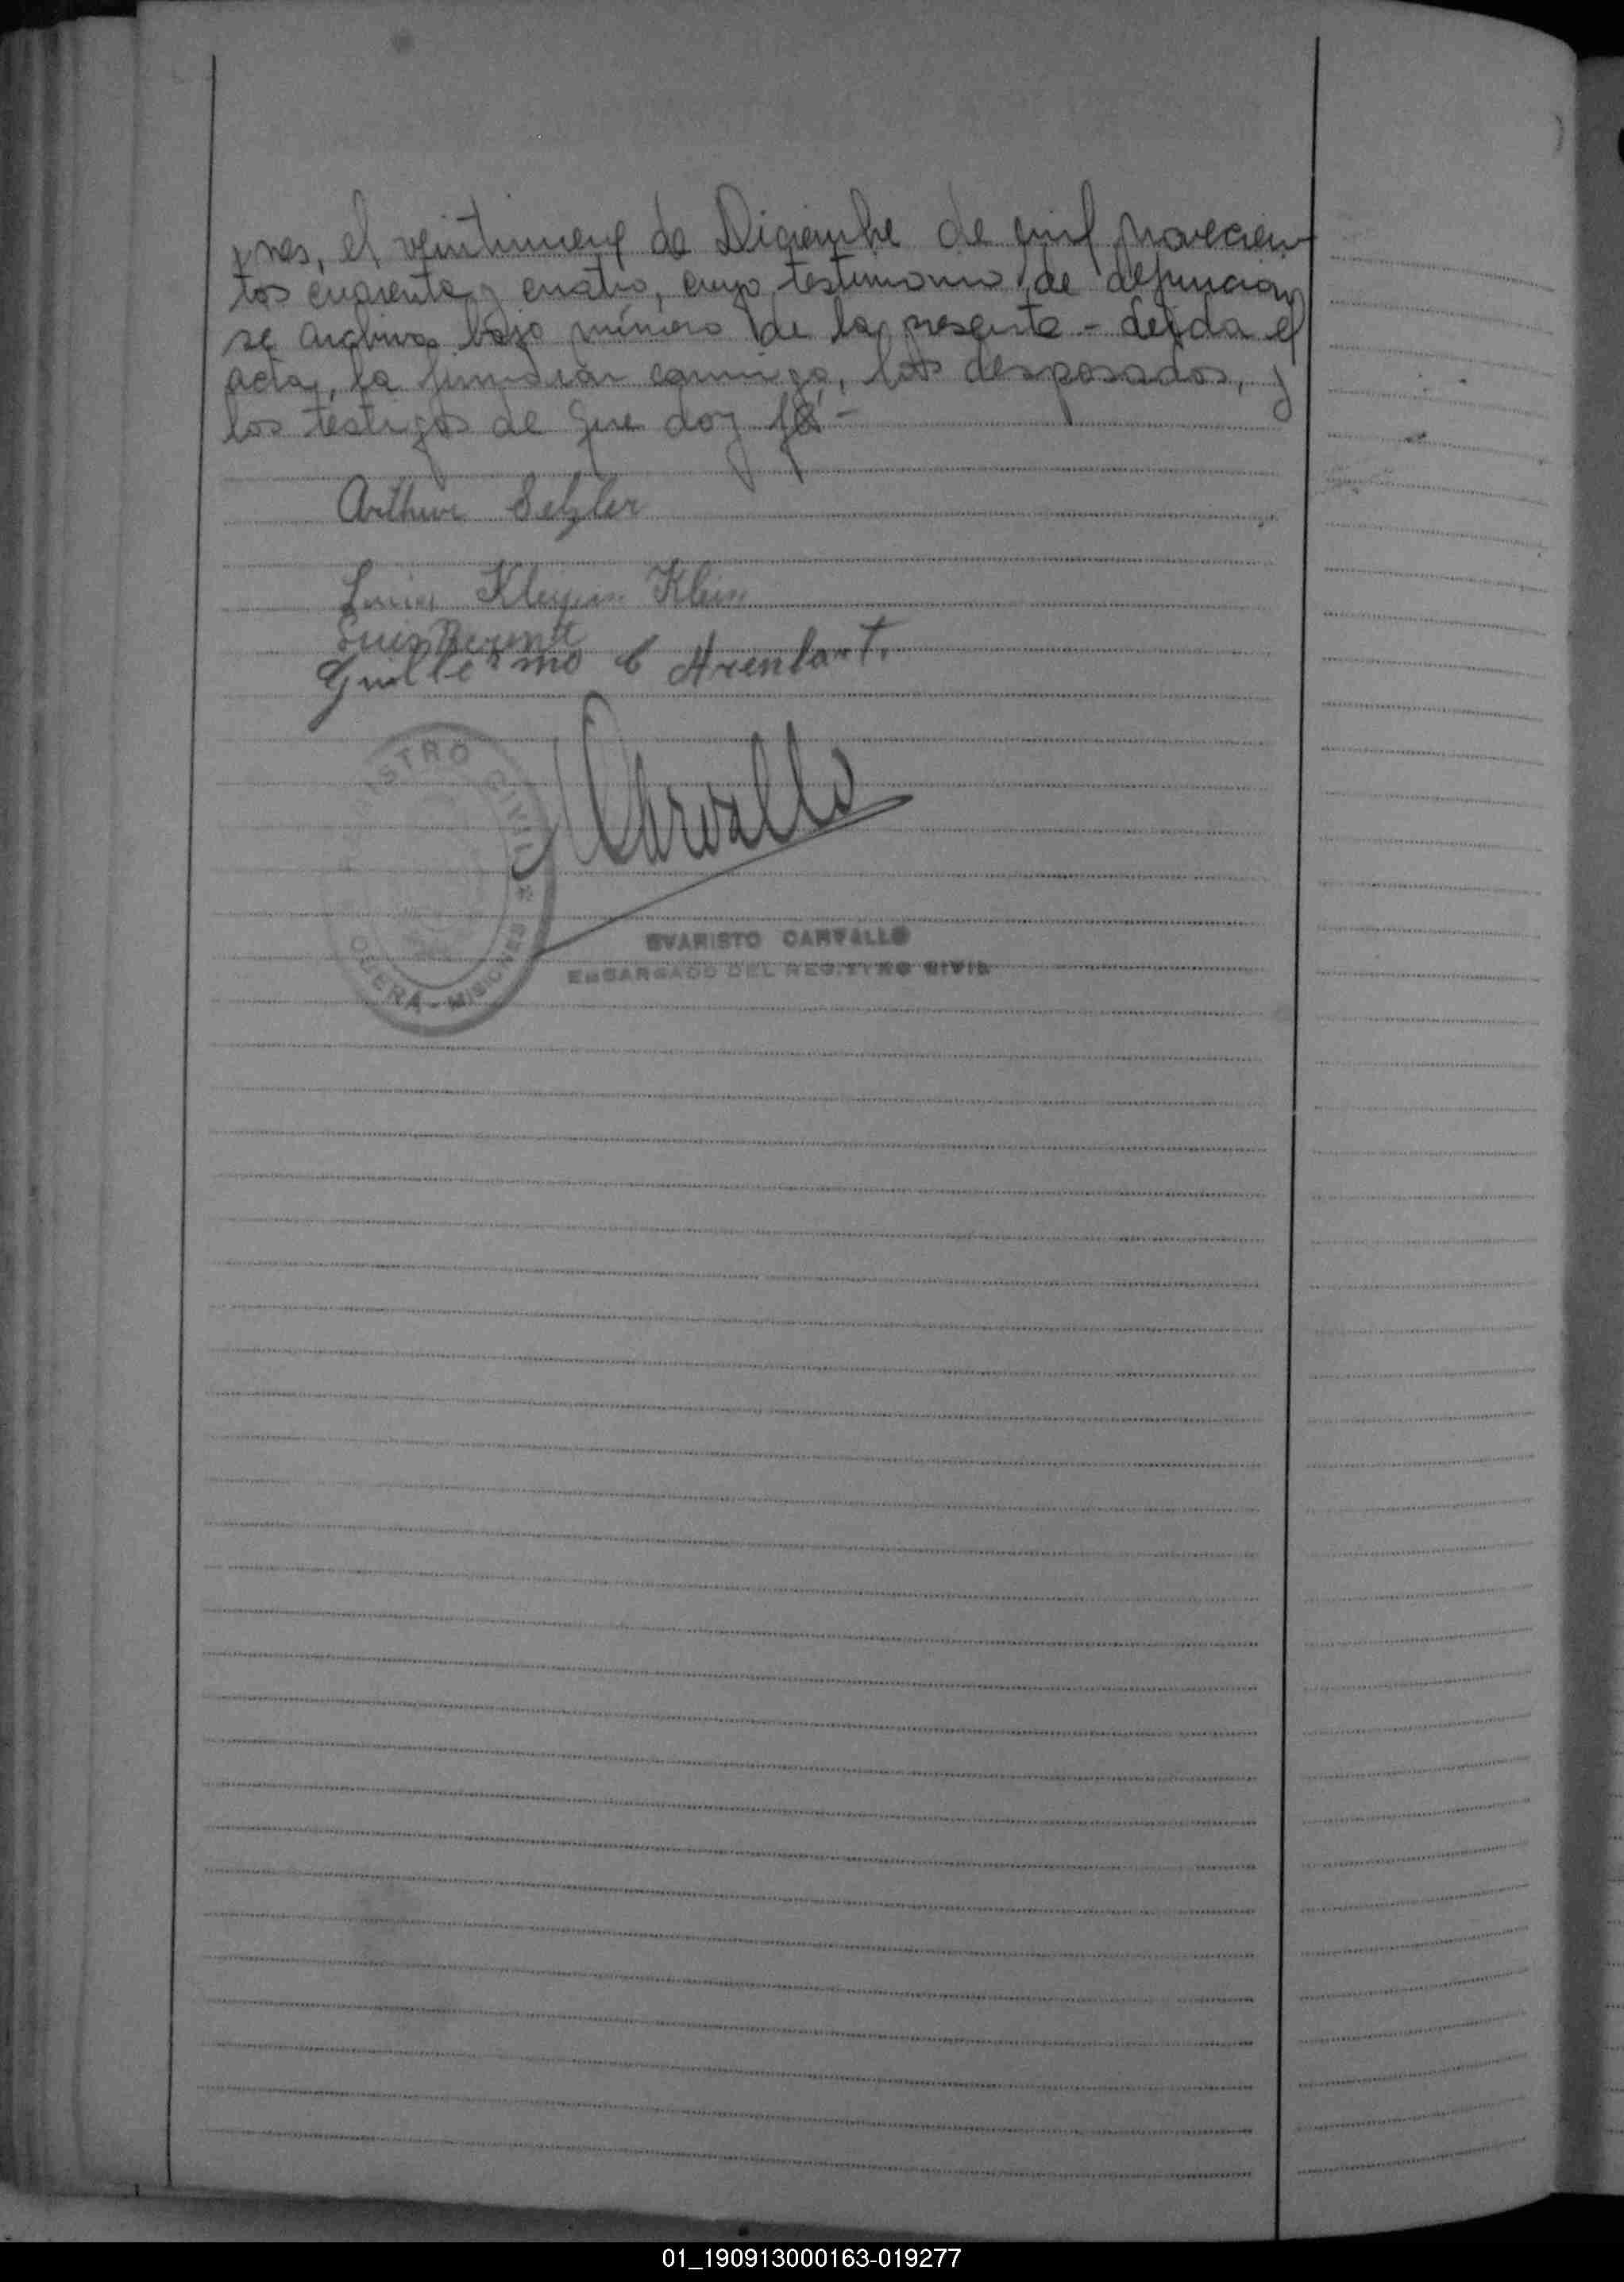 nes, el veintinueve de Diciembre de mil novecien
tos cuarenta y cuatro, cuyo testimonio de defuncion
se archiva bajo número de la presente - Leida el
acta, la firmaron conmigo, los desposados, y
los testigos de que doy fé -
Arthur Selzler
Klein
Luis
Guillermo Arenhart.
Carvallo
REGISTRO CIVIL
OBERA - MISIONES
EVARISTO CARVALLO
ENCARGADO DEL REGISTRO CIVIL
01_190913000163-019277